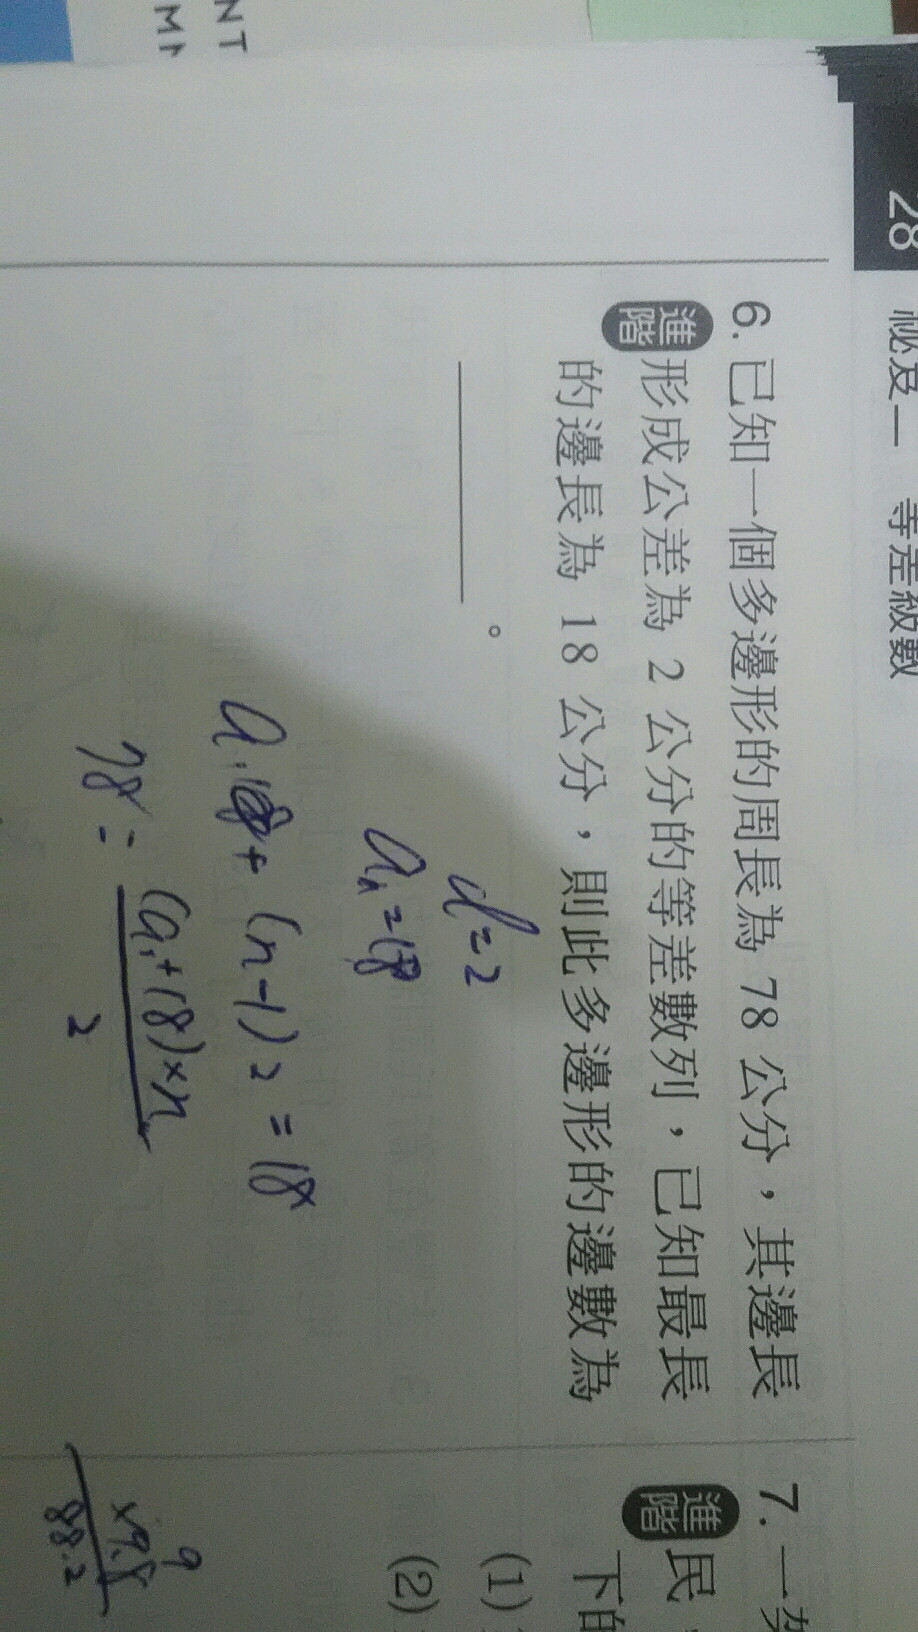 NT
28 祕及一 等差級數
6. 已知一個多邊形的周長為 78 公分，其邊長
進階 形成公差為 2 公分的等差數列，已知最長
的邊長為 18 公分，則此多邊形的邊數為
。
d=2
aₙ=18
a₁ + (n-1)2 = 18
78 = (a₁+18)×n
2
7. 一架
進階 民
下的
(1)
(2)
9
×9.8
88.2